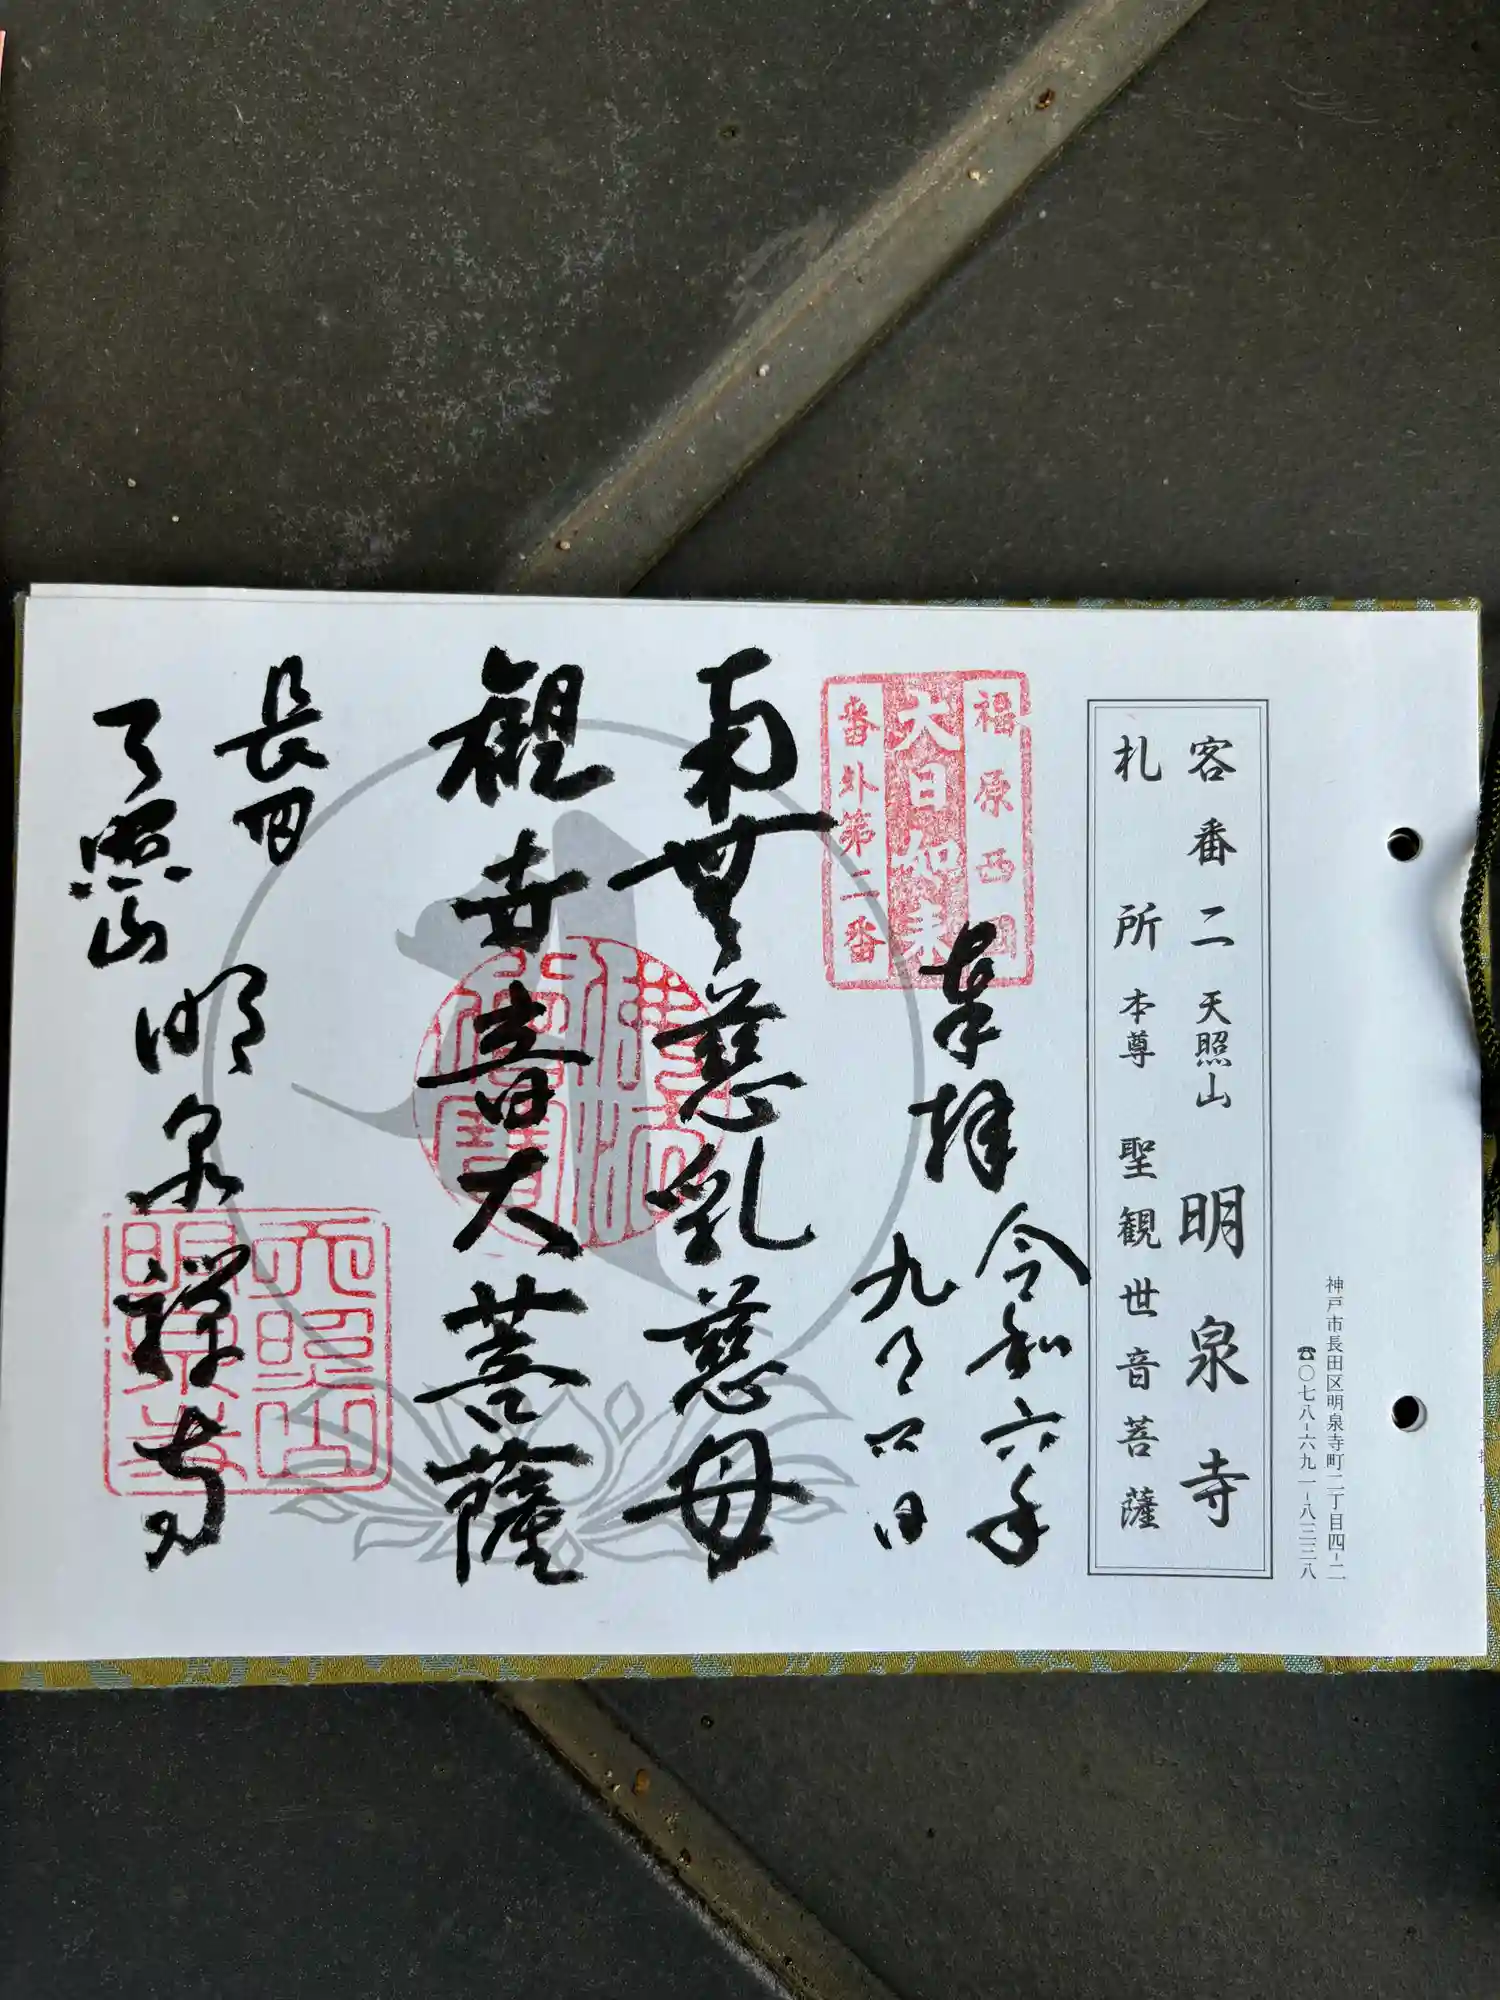 神戸市長田区明泉寺町二丁目四-二
☎〇七八-六九一-八三三八
客番二 天照山 明泉寺
札所 本尊 聖観世音菩薩
福原西國
大日如来
番外第二番
奉拝 令和六年
九月 日
南無慈乳慈母
観世音大菩薩
長田
天照山 明泉禅寺
天照山
明泉寺